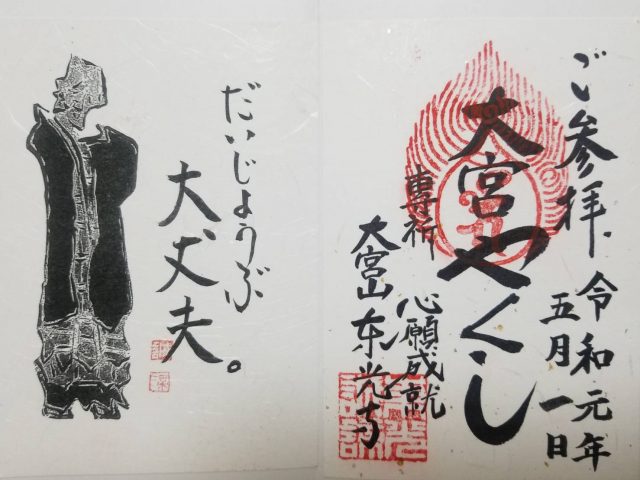 ご参拝、令和元年
五月一日
大宮やくし
専祈
心願成就
大宮山東光寺
だいじょうぶ
大丈夫。